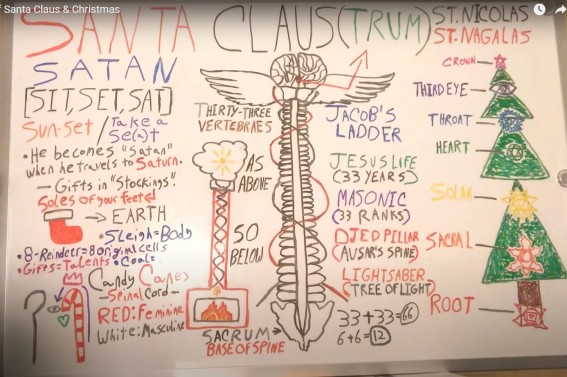 f Santa Claus & Christmas
SANTA CLAUS(TRUM)
ST. NICOLAS
ST. NAGALAS
SATAN
[SIT, SET, SAT]
Sun-Set / Take a Se(a)t
• He becomes "Satan"
when he travels to Saturn.
— Gifts in "Stockings".
Soles of your feeted
→ EARTH
• Sleigh=Body
• 8-Reindeer=8 original cells
• Gifts=Talents • Coal=
Candy Canes
— Spinal Cord —
RED: Feminine
White: Masculine
THIRTY-THREE
VERTEBRAES
AS
ABOVE
SO
BELOW
SACRUM
BASE OF SPINE
JACOB'S
LADDER
JESUS LIFE
(33 YEARS)
MASONIC
(33 RANKS)
DJED PILLAR
(AUSAR'S SPINE)
LIGHTSABER
(TREE OF LIGHT)
33+33=66
6+6=12
CROWN
THIRD EYE
THROAT
HEART
SOLAR
SACRAL
ROOT